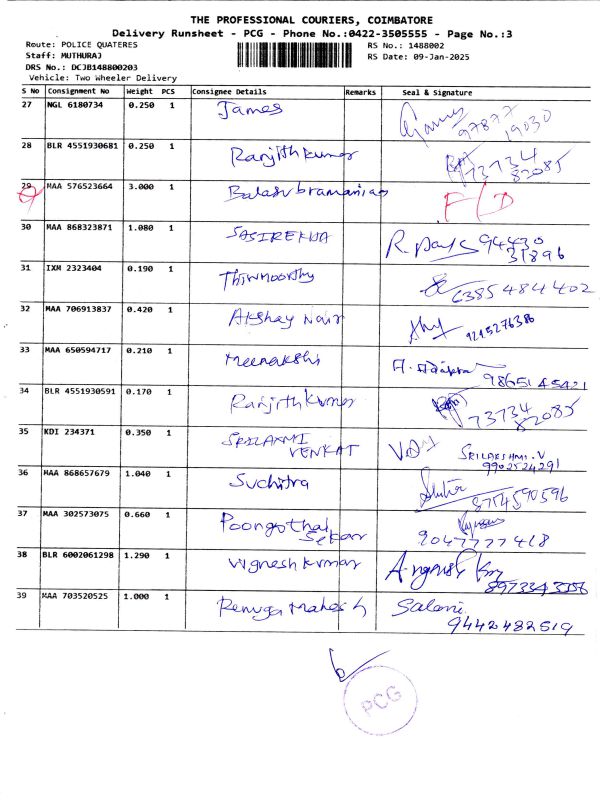 THE PROFESSIONAL COURIERS, COIMBATORE
Delivery Runsheet - PCG - Phone No.:0422-3505555 - Page No.:3
Route: POLICE QUATERES RS No.: 1488002
Staff: MUTHURAJ RS Date: 09-Jan-2025
DRS No.: DCJB148800203
Vehicle: Two Wheeler Delivery
S No Consignment No Weight PCS Consignee Details Remarks Seal & Signature
27 NGL 6180734 0.250 1 James
97877
19030
28 BLR 4551930681 0.250 1 Ranjithkumar 73734
82085
29 MAA 576523664 3.000 1 Balasubramanian F/D
30 MAA 868323871 1.080 1 SASIREKHA 94430
31896
31 IXM 2323404 0.190 1 Thirumoorthy 6385484402
32 MAA 706913837 0.420 1 Akshay Nair 9245276386
33 MAA 650594717 0.210 1 Meenakshi
9865145421
34 BLR 4551930591 0.170 1 Ranjithkumar 73734
82085
35 KDI 234371 0.350 1 SRILAXMI
VENKAT SRILAKSHMI.V
9902524291
36 MAA 868657679 1.040 1 Suchitra
8754590596
37 MAA 302573075 0.660 1 Poongothai
Sekar 9047777418
38 BLR 6002061298 1.290 1 Vignesh kumar
39 MAA 703520525 1.000 1 Renuga Mahesh Salani
9442482519
PCG